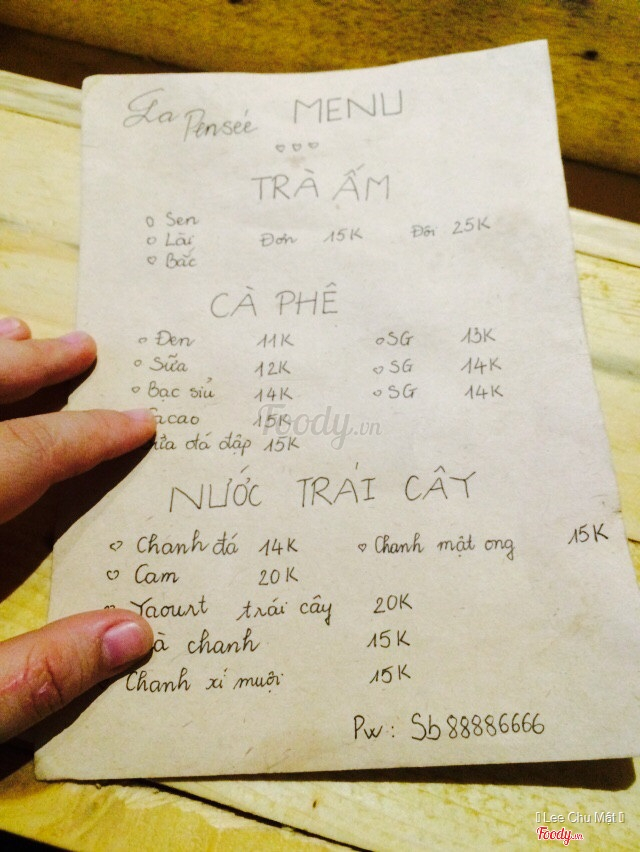 La Pensée MENU
TRÀ ẤM
Sen
Lài Đơn 15K Đôi 25K
Bắc
CÀ PHÊ
Đen 11K SG 13K
Sữa 12K SG 14K
Bạc siủ 14K SG 14K
cacao 15K
đá đập 15K
Foody.vn
NƯỚC TRÁI CÂY
Chanh đá 14K Chanh mật ong 15K
Cam 20K
Yaourt trái cây 20K
chanh 15K
Chanh xí muội 15K
Pw: Sb88886666
Lee Chu Mặt
Foody.vn